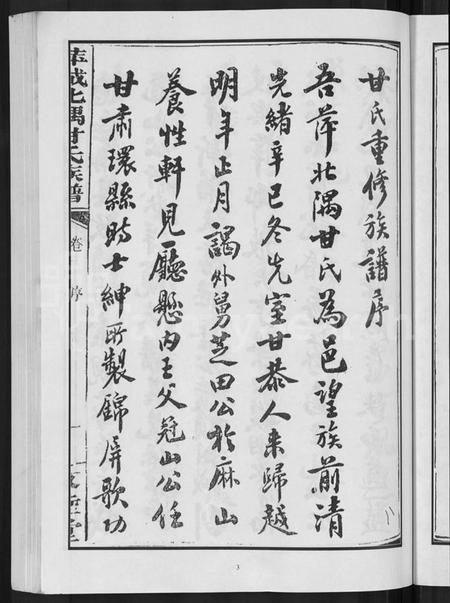 甘氏重修族譜序
吾萍北隅甘氏為邑望族前清
光緒辛巳冬先室甘恭人來歸越
明年正月謁外舅芝田公於麻山
養性軒見廳懸內王父冠山公任
甘肅環縣時士紳所製錦屏歌功
萍城北隅甘氏族譜
卷
序
3